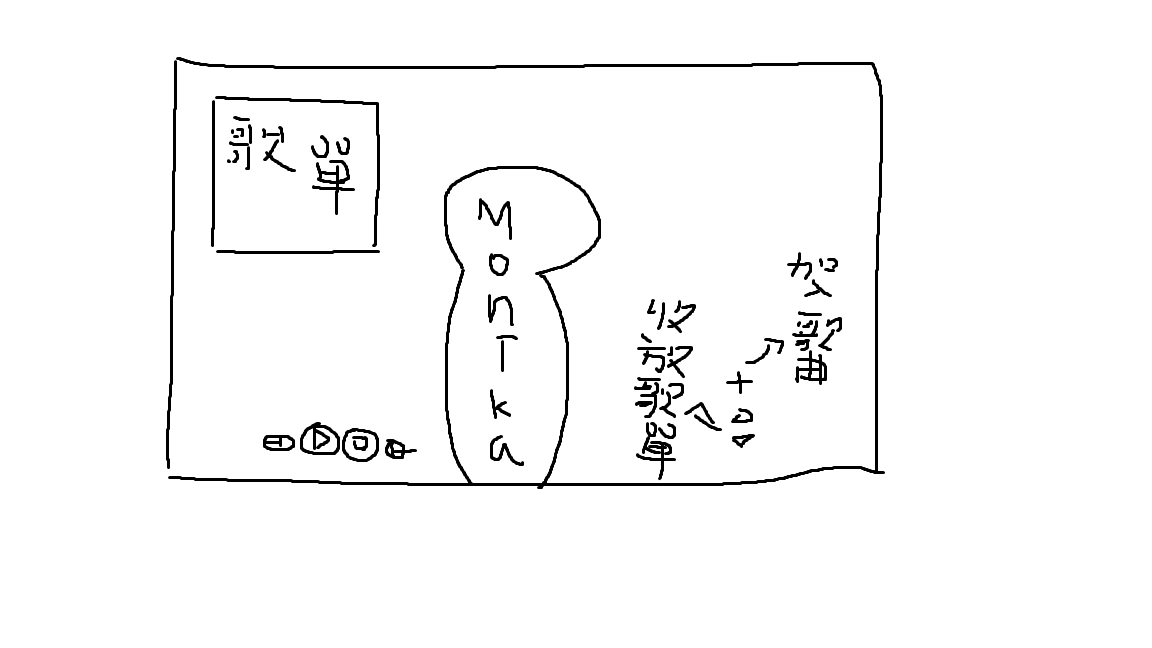 歌單
MonIka
收放歌單
加入歌曲